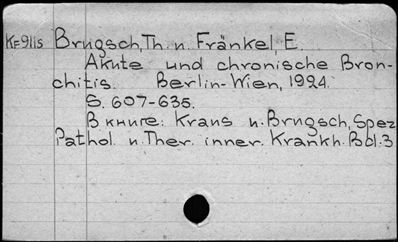 K=911s Brugsch, Th. u. Fränkel, E.
Akute und chronische Bron-
chitis. Berlin-Wien, 1924.
S. 607-635.
В книге: Kraus u. Brugsch, Spez
Pathol. u. Ther. inner. Krankh. Bd. 3